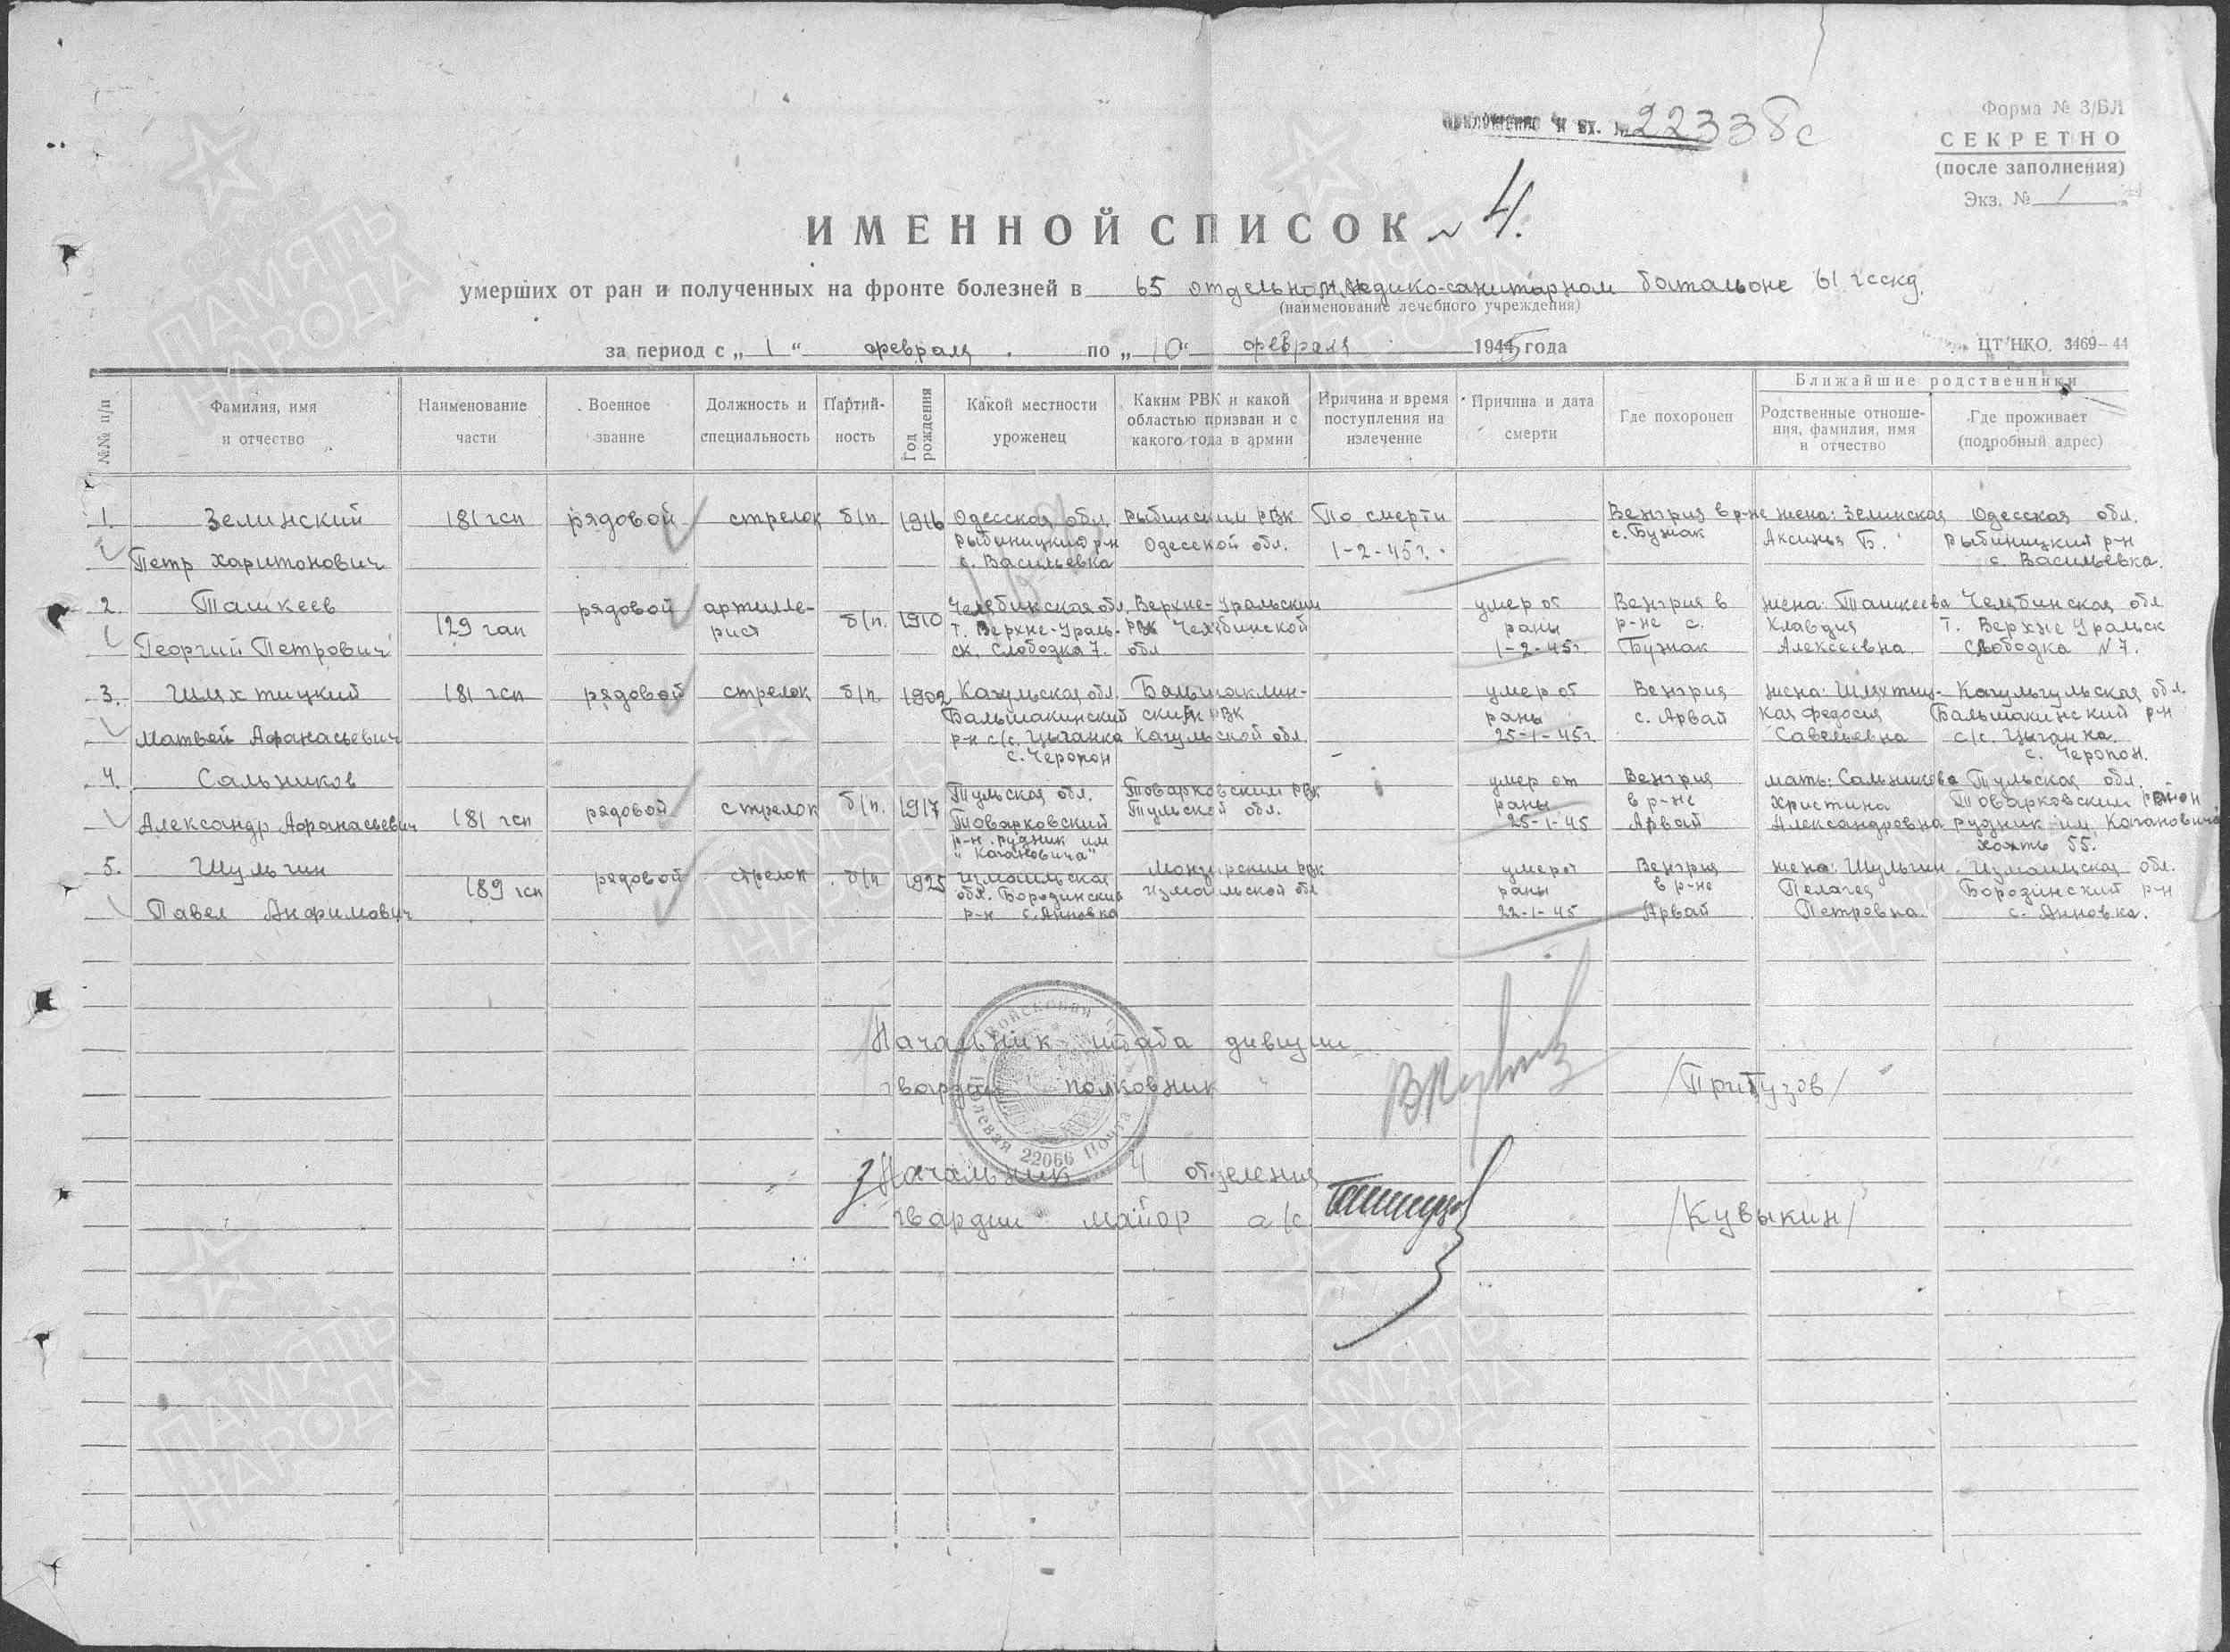 Приложение к вх. № 22338с
Форма № 3/БЛ
СЕКРЕТНО
(после заполнения)
Экз. № 1
ИМЕННОЙ СПИСОК № 4.
умерших от ран и полученных на фронте болезней в 65 отдельном медико-санитарном батальоне 61 гсскд.
(наименование лечебного учреждения)
за период с „1“ февраля по „10“ февраля 1945 года
ЦТ НКО. 3469–44
№№ п/п
Фамилия, имя и отчество
Наименование части
Военное звание
Должность и специальность
Партийность
Год рождения
Какой местности уроженец
Каким РВК и какой областью призван и с какого года в армии
Причина и время поступления на излечение
Причина и дата смерти
Где похоронен
Ближайшие родственники
Родственные отношения, фамилия, имя и отчество
Где проживает (подробный адрес)
1. Зелинский Петр Харитонович 181 гсп рядовой стрелок б/п. 1916 Одесская обл. Рыбницкий р-н с. Васильевка Рыбинским РВК Одесской обл. По смерти 1-2-45г. Венгрия в р-не с. Бужак жена: Зелинская Аксинья Б. Одесская обл. Рыбницкий р-н с. Васильевка.
2. Ташкеев Георгий Петрович 129 гап рядовой артиллерист б/п. 1910 Челябинская обл. г. Верхне-Уральск. Слободка 7. Верхне-Уральским РВК Челябинской обл умер от раны 1-2-45г. Венгрия в р-не с. Бужак жена: Ташкеева Клавдия Алексеевна. Челябинская обл г. Верхне Уральск Слободка №7.
3. Шляхтицкий Матвей Афанасьевич 181 гсп рядовой стрелок б/п. 1902 Кагульская обл. Бальмакинский р-н с/с. Цыганка с. Черопон Бальмаклинский РВК Кагульской обл. умер от раны 25-1-45г. Венгрия с. Арвай жена: Шляхтицкая Федосия Савельевна Кагульгульская обл. Бальмакинский р-н с/с. Цыганка. с. Черопон.
4. Сальников Александр Афанасьевич 181 гсп рядовой стрелок б/п. 1917 Тульская обл. Товарковский р-н. рудник им „Кагановича“ Товарковским РВК Тульской обл. умер от раны 25-1-45 Венгрия в р-не Арвай мать: Сальникова Христина Александровна Тульская обл. Товарковским район рудник им. Кагановича 55.
5. Шульгин Павел Анфимович 189 гсп рядовой стрелок б/п 1925 Измаильская обл. Бородинский р-н с. Анновка РВК Измаильской обл умер от раны 22-1-45 Венгрия в р-не Арвай жена: Шульгин Пелагея Петровна. Измаильская обл. Бородинский р-н с. Анновка.
Начальник штаба дивизии
гвардии полковник /Притузов/
Войсковая
Полевая Почта 22066
Начальник 4 отделения
гвардии майор а/с /Кувыкин/
ПАМЯТЬ НАРОДА
ПАМЯТЬ НАРОДА
ПАМЯТЬ НАРОДА
ПАМЯТЬ НАРОДА
ПАМЯТЬ НАРОДА
ПАМЯТЬ НАРОДА